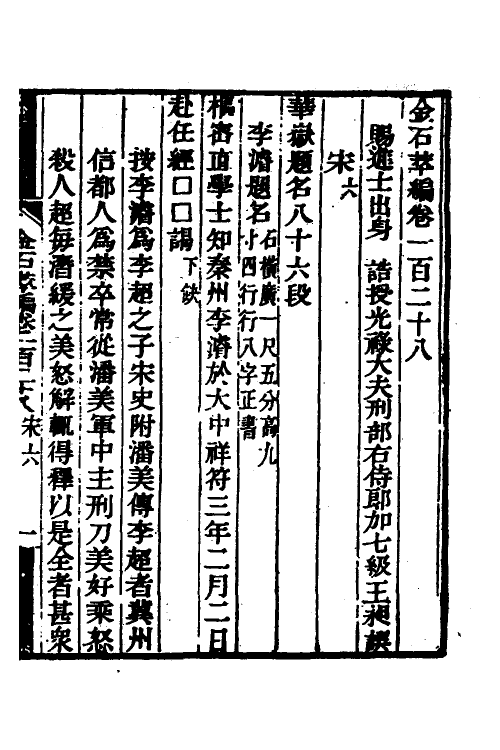 金石萃編卷一百二十八
賜進士出身 誥授光祿大夫刑部右侍郎加七級王昶譔
宋六
華嶽題名八十六段
李濬題名石橫廣一尺五分高九
寸四行行八字正書
樞密直學士知秦州李濬於大中祥符三年二月二日
赴任經□□謁下缺
按李濬爲李超之子宋史附潘美傳李超者冀州
信都人爲禁卒常從潘美軍中主刑刀美好乘怒
殺人超每潛緩之美怒解輒得釋以是全者甚衆
金石萃編卷一百二十八 宋六 一